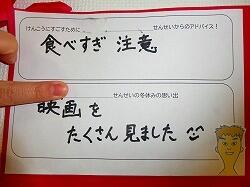 けんこうにすごすために せんせいからのアドバイス!
食べすぎ 注意
せんせいの冬休みの思い出
映画を
たくさん見ました